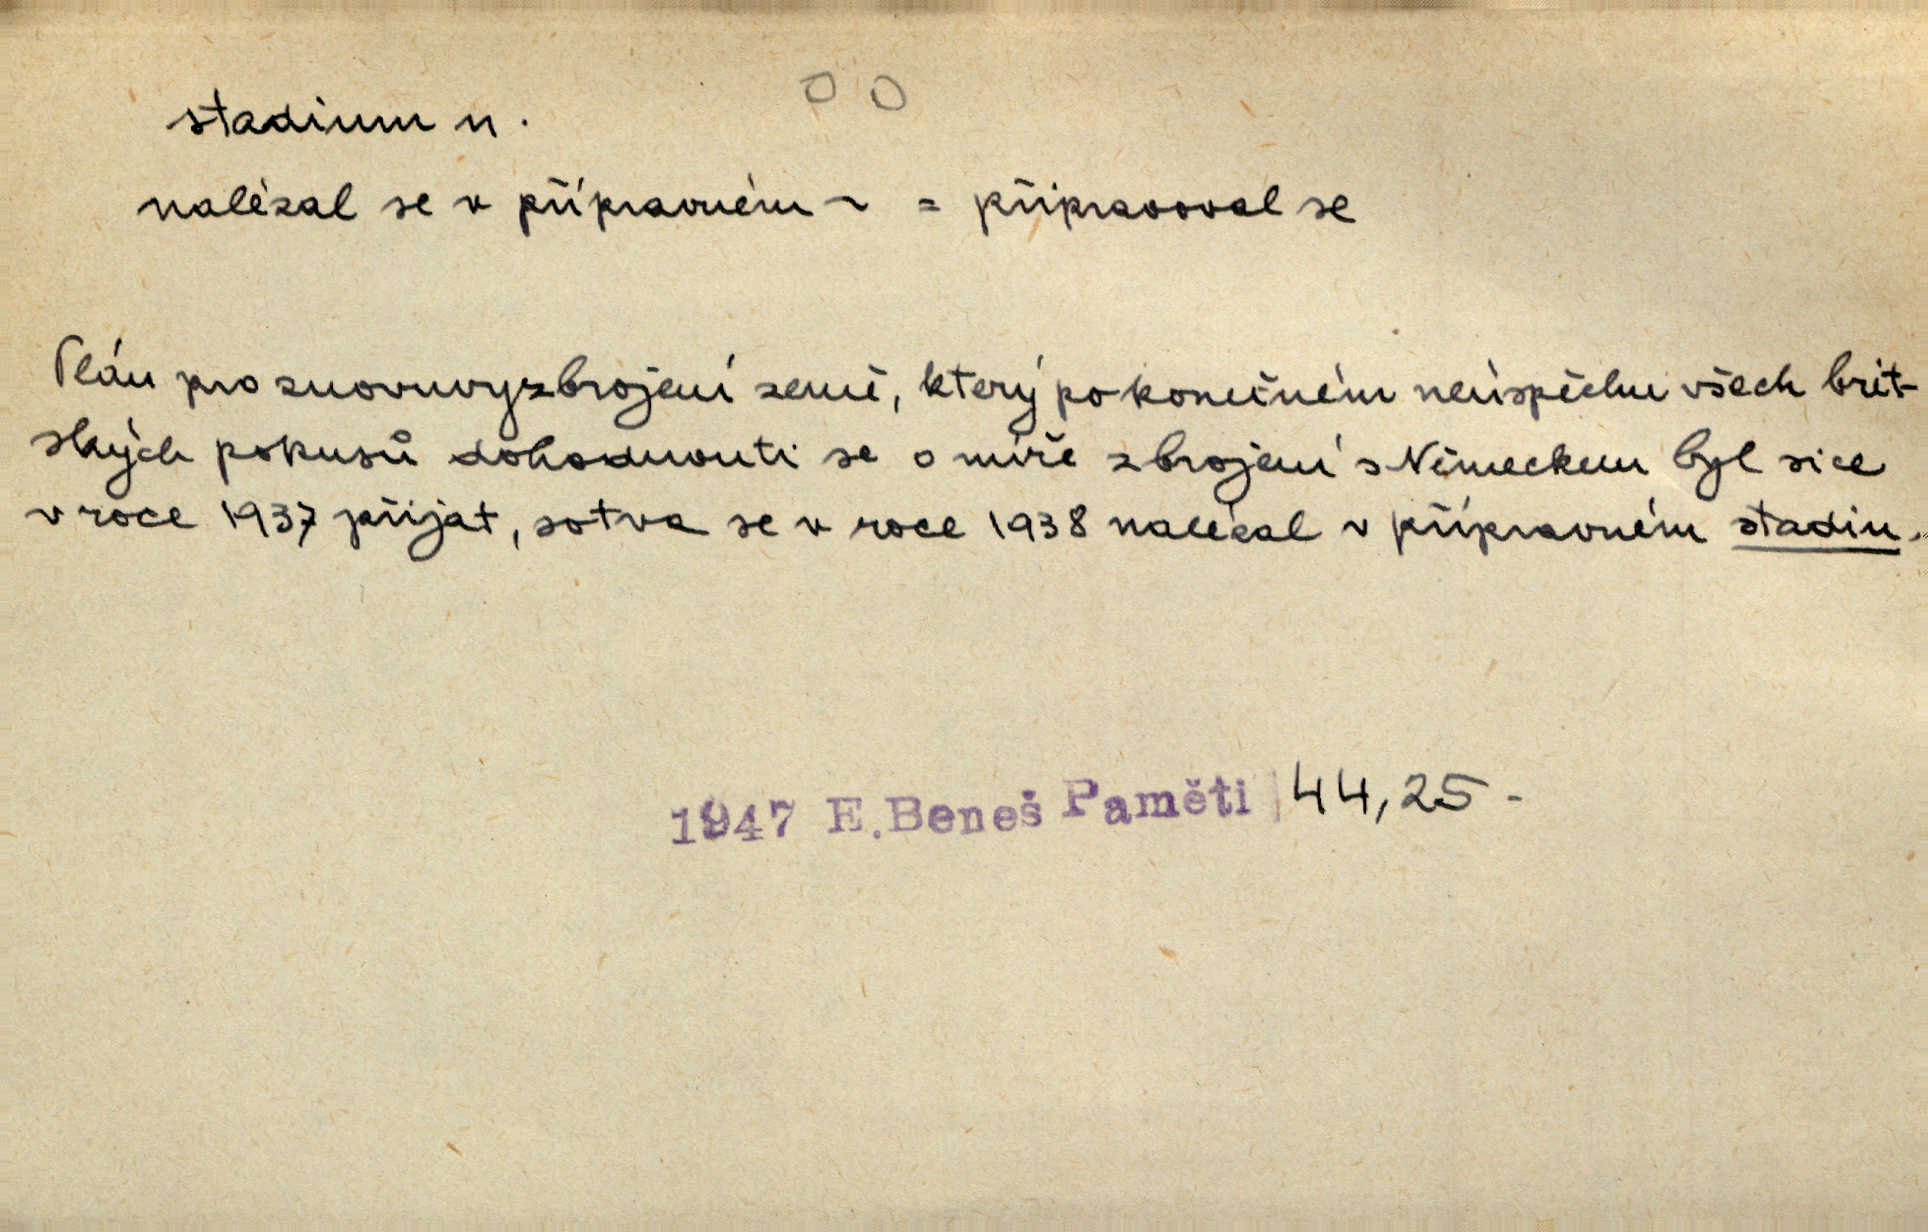 stadium n.
nalézal se v přípravném ~ = připravoval se
Plán pro znovuvyzbrojení země, který po konečném neúspěchu všech brit-
ských pokusů dohodnouti se o míře zbrojení s Německem byl sice
v roce 1937 přijat, sotva se v roce 1938 nalézal v přípravném stadiu.
1947 E. Beneš Paměti 44, 25 -